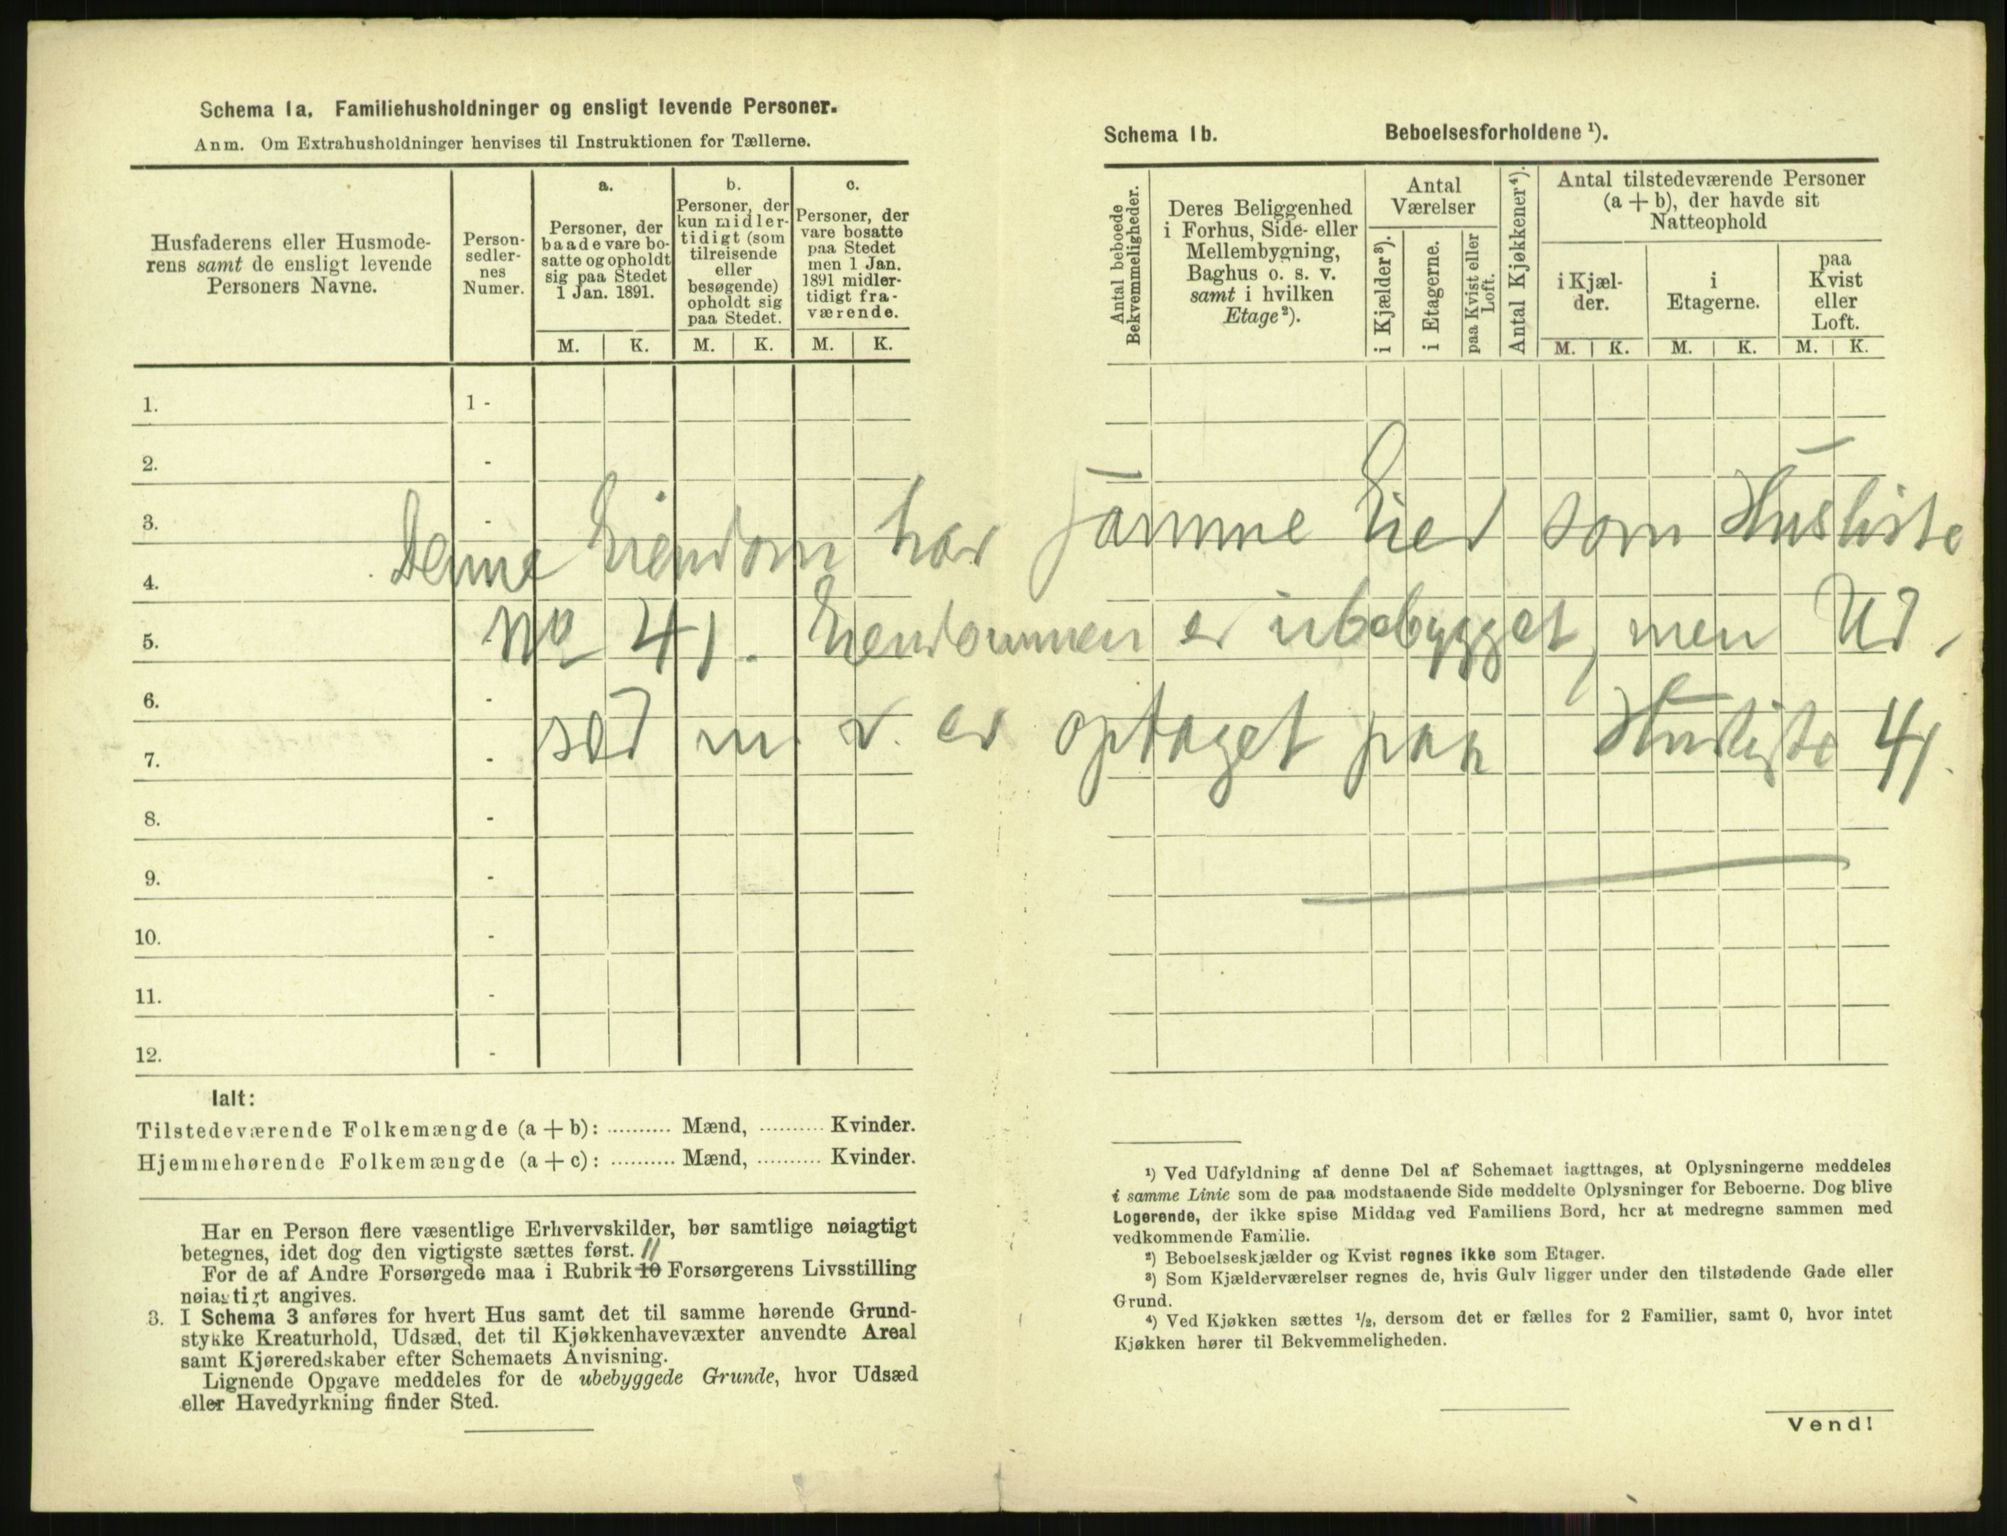 Schema 1a. Familiehusholdninger og ensligt levende Personer.
Anm. Om Extrahusholdninger henvises til Instruktionen for Tællerne.
Husfaderens eller Husmode-
rens samt de ensligt levende
Personers Navne.
Person-
sedler-
nes
Numer.
a.
Personer, der
baade vare bo-
satte og opholdt
sig paa Stedet
1 Jan. 1891.
b.
Personer, der
kun midler-
tidigt (som
tilreisende
eller
besøgende)
opholdt sig
paa Stedet.
c.
Personer, der
vare bosatte
paa Stedet
men 1 Jan.
1891 midler-
tidigt fra-
værende.
M. K. M. K. M. K.
1. 1 -
2. -
3. -
4.
5.
6. -
7. -
8. -
9. -
10. -
11. -
12. -
Ialt:
Tilstedeværende Folkemængde (a + b): .......... Mænd, .......... Kvinder.
Hjemmehørende Folkemængde (a + c): .......... Mænd, .......... Kvinder.
Har en Person flere væsentlige Erhvervskilder, bør samtlige nøiagtigt
betegnes, idet dog den vigtigste sættes først.
11
For de af Andre Forsørgede maa i Rubrik 10 Forsørgerens Livsstilling
nøiagtigt angives.
3. I Schema 3 anføres for hvert Hus samt det til samme hørende Grund-
stykke Kreaturhold, Udsæd, det til Kjøkkenhavevæxter anvendte Areal
samt Kjøreredskaber efter Schemaets Anvisning.
Lignende Opgave meddeles for de ubebyggede Grunde, hvor Udsæd
eller Havedyrkning finder Sted.
Schema 1b. Beboelsesforholdene ¹).
Antal beboede
Bekvemmeligheder.
Deres Beliggenhed
i Forhus, Side- eller
Mellembygning,
Baghus o. s. v.
samt i hvilken
Etage²).
Antal
Værelser
i Kjælder³).
i Etagerne.
paa Kvist eller
Loft.
Antal Kjøkkener⁴).
Antal tilstedeværende Personer
(a + b), der havde sit
Natteophold
i Kjæl-
der.
i
Etagerne.
paa
Kvist
eller
Loft.
M. K. M. K. M. K.
Denne Eiendom har samme Eier som Husliste
No 41. Eiendommen er ubebygget, men Ud-
sæd m. v. er optaget paa Husliste 41.
¹) Ved Udfyldning af denne Del af Schemaet iagttages, at Oplysningerne meddeles
i samme Linie som de paa modstaaende Side meddelte Oplysninger for Beboerne. Dog blive
Logerende, der ikke spise Middag ved Familiens Bord, her at medregne sammen med
vedkommende Familie.
²) Beboelseskjælder og Kvist regnes ikke som Etager.
³) Som Kjælderværelser regnes de, hvis Gulv ligger under den tilstødende Gade eller
Grund.
⁴) Ved Kjøkken sættes ½, dersom det er fælles for 2 Familier, samt 0, hvor intet
Kjøkken hører til Bekvemmeligheden.
Vend!